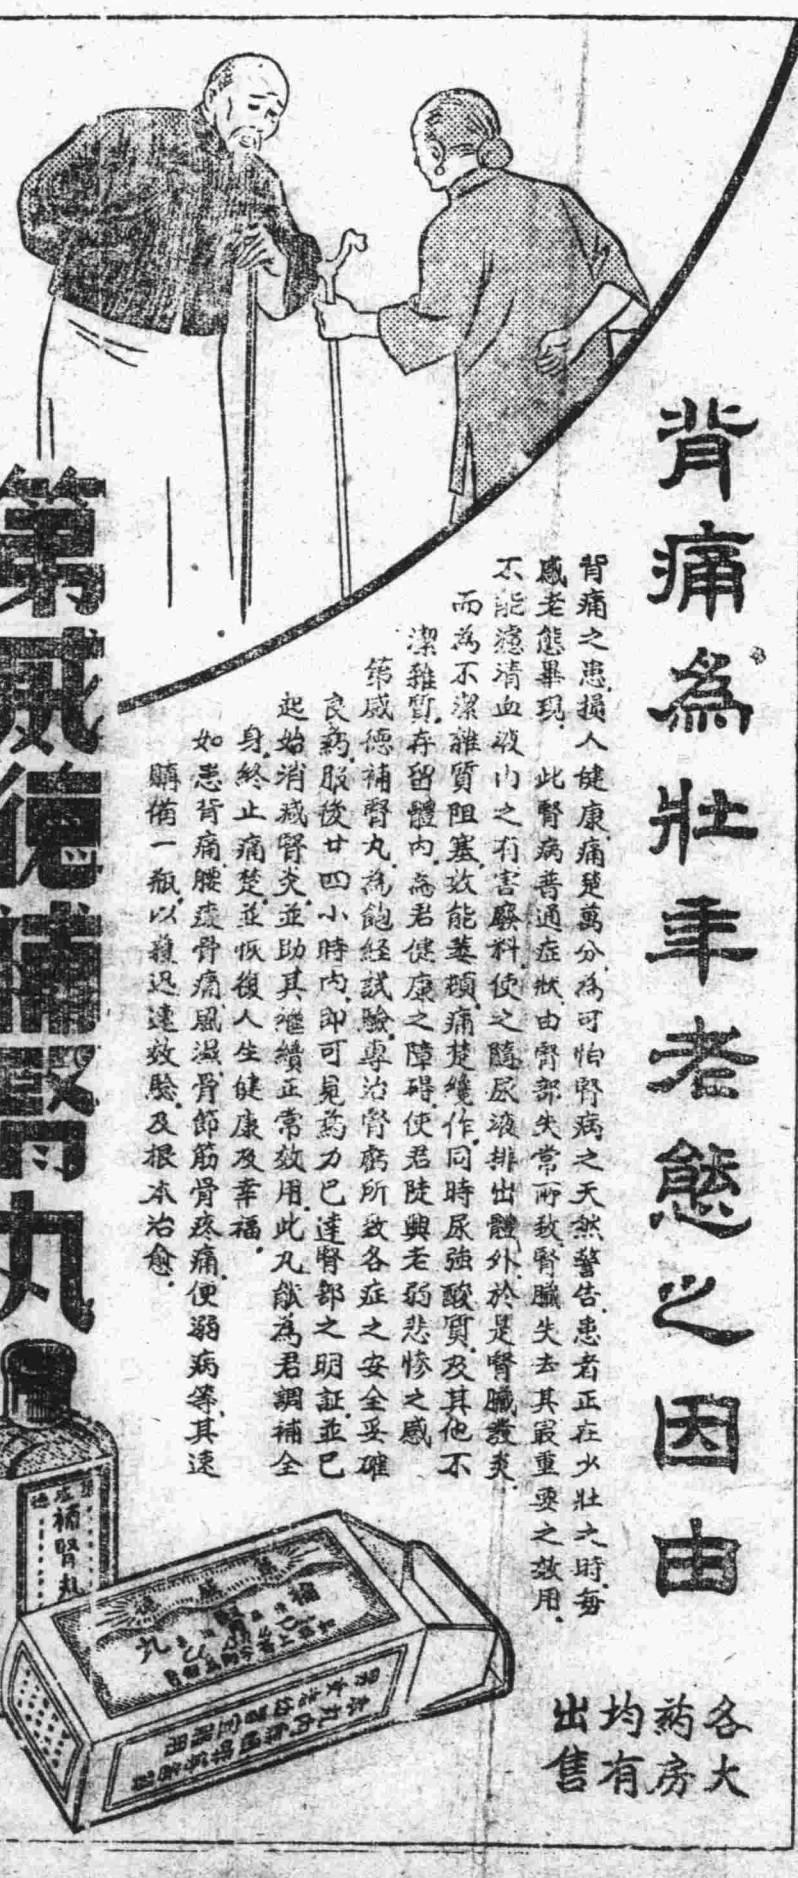 背痛為壯年老態之因由
背痛之患損人健康痛楚萬分為可怕腎病之天然警告患者正在少壯之時每
感老態畢現此腎病普通症狀由腎部失常所致腎臟失去其最重要之效用
不能濾清血液內之有害廢料使之隨尿液排出體外於是腎臟發炎
而為不潔雜質阻塞效能萎頓痛楚纔作同時尿強酸質及其他不
潔雜質存留體內為君健康之障碍使君陡興老弱悲慘之感
第威德補腎丸為飽經試驗專治腎虧所致各症之安全妥確
良药服後廿四小時內即可見药力已達腎部之明証並已
起始消减腎炎並助其繼續正常效用此丸能為君調補全
身終止痛楚並恢復人生健康及幸福
如患背痛腰痠骨痛風濕骨節筋骨疼痛便溺病等其速
購備一瓶以獲迅速效驗及根本治愈
第威德補腎丸
各大
药房
均有
出售
補腎丸